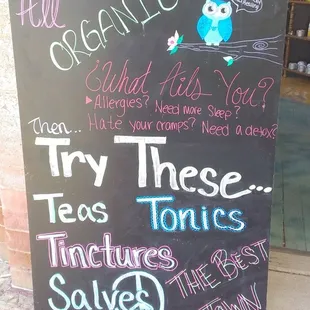 All
ORGANIC
¿What Ails You?
▸Allergies? Need more Sleep?
Hate your cramps? Need a detox?
Then...
Try These...
Teas Tonics
Tinctures
Salves
THE BEST
TOWN